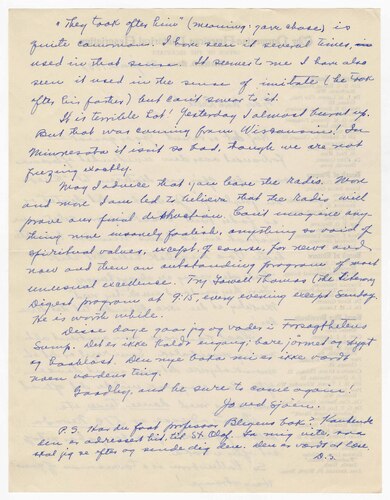 "They took after him" (meaning: gave chase) is
quite common. I have seen it several times, in
used in that sense. It seems to me I have also
seen it used in the sense of imitate (he took
after his father) but can't swear to it.
It is terrible hot! Yesterday I almost burnt up.
But that was coming from Wisconsin! In
Minnesota it isn't so bad, though we are not
freezing exactly.
May I advise that you leave the radio. More
and more I am led to believe that the radio will
prove our final destruction. Can't imagine any-
thing more insanely foolish, anything so void of
spiritual values, except, of course, for news and
now and then an outstanding program of most
unusual excellence. Try Lowell Thomas (the Literary
Digest program at 9:15, every evening except Sunday.
He is worth while.
Disse dage gaar jeg og vader i
Sump. Det er ikke Kalds engang; bare jormet og stygt
og Den nye bok a mi er ikke vordt
noen verdens ting.
Goodby, and be sure to come again!
P.S. Har du faat professor Blegens bok? Kanskende
den er adressert hit til St. Olaf. La mig vite, saa
skal jeg se efter og sende dig den. Den er værdt at læse.
D.S.